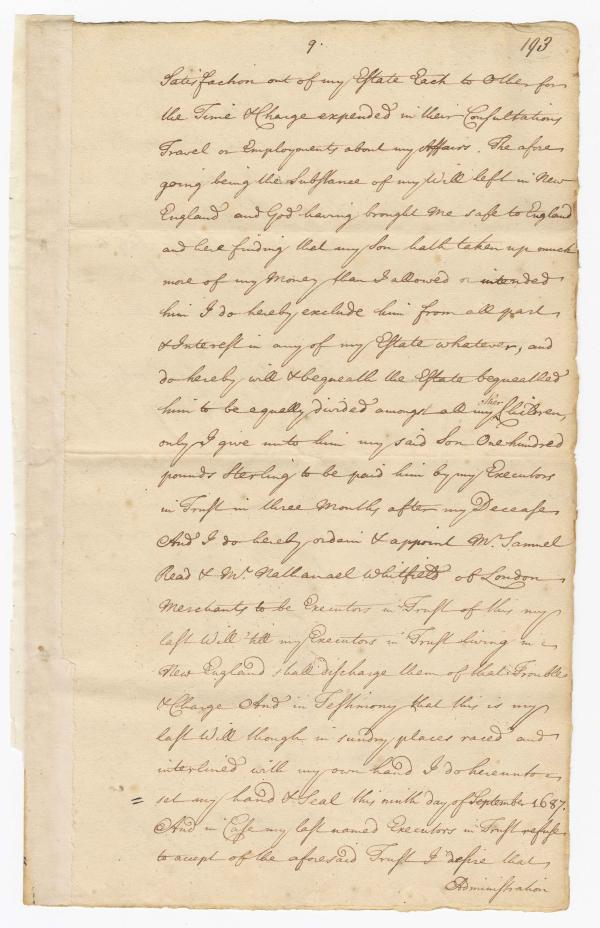 9.
193
Satisfaction out of my Estate Each to Other for
the Time & Charge expended in their Consultations
Travel or Employments about my Affairs. The afore
going being the Substance of my Will left in New
England and God having brought me safe to England
and here finding that my Son hath taken up much
more of my Money than I allowed or intended
him I do hereby exclude him from all part
& Interest in any of my Estate whatever, and
do hereby will & bequeath the Estate bequeathed
him to be equally divided amongst all my other Children,
only I give unto him my said Son One hundred
pounds Sterling to be paid him by my Executors
in Trust in three Months after my Decease
And I do hereby ordain & appoint Mr. Samuel
Read & Mr. Nathanael Whitfield of London
Merchants to be Executors in Trust of this my
last Will 'till my Executors in Trust living in
New England shall discharge them of that Trouble
& Charge And in Testimony that this is my
last Will though in sundry places raced and
interlined with my own hand I do hereunto
= set my hand & Seal this ninth day of September 1687.
And in Case my last named Executors in Trust refuse
to accept of the aforesaid Trust I desire that
Administration